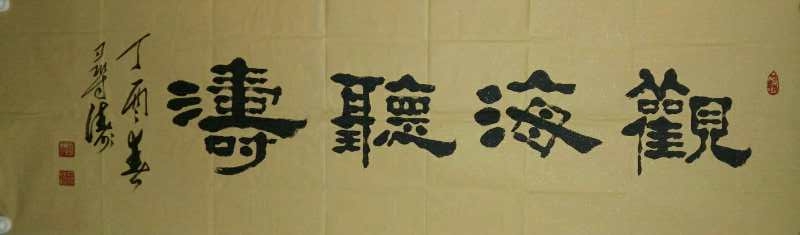 觀海聽濤
丁酉春